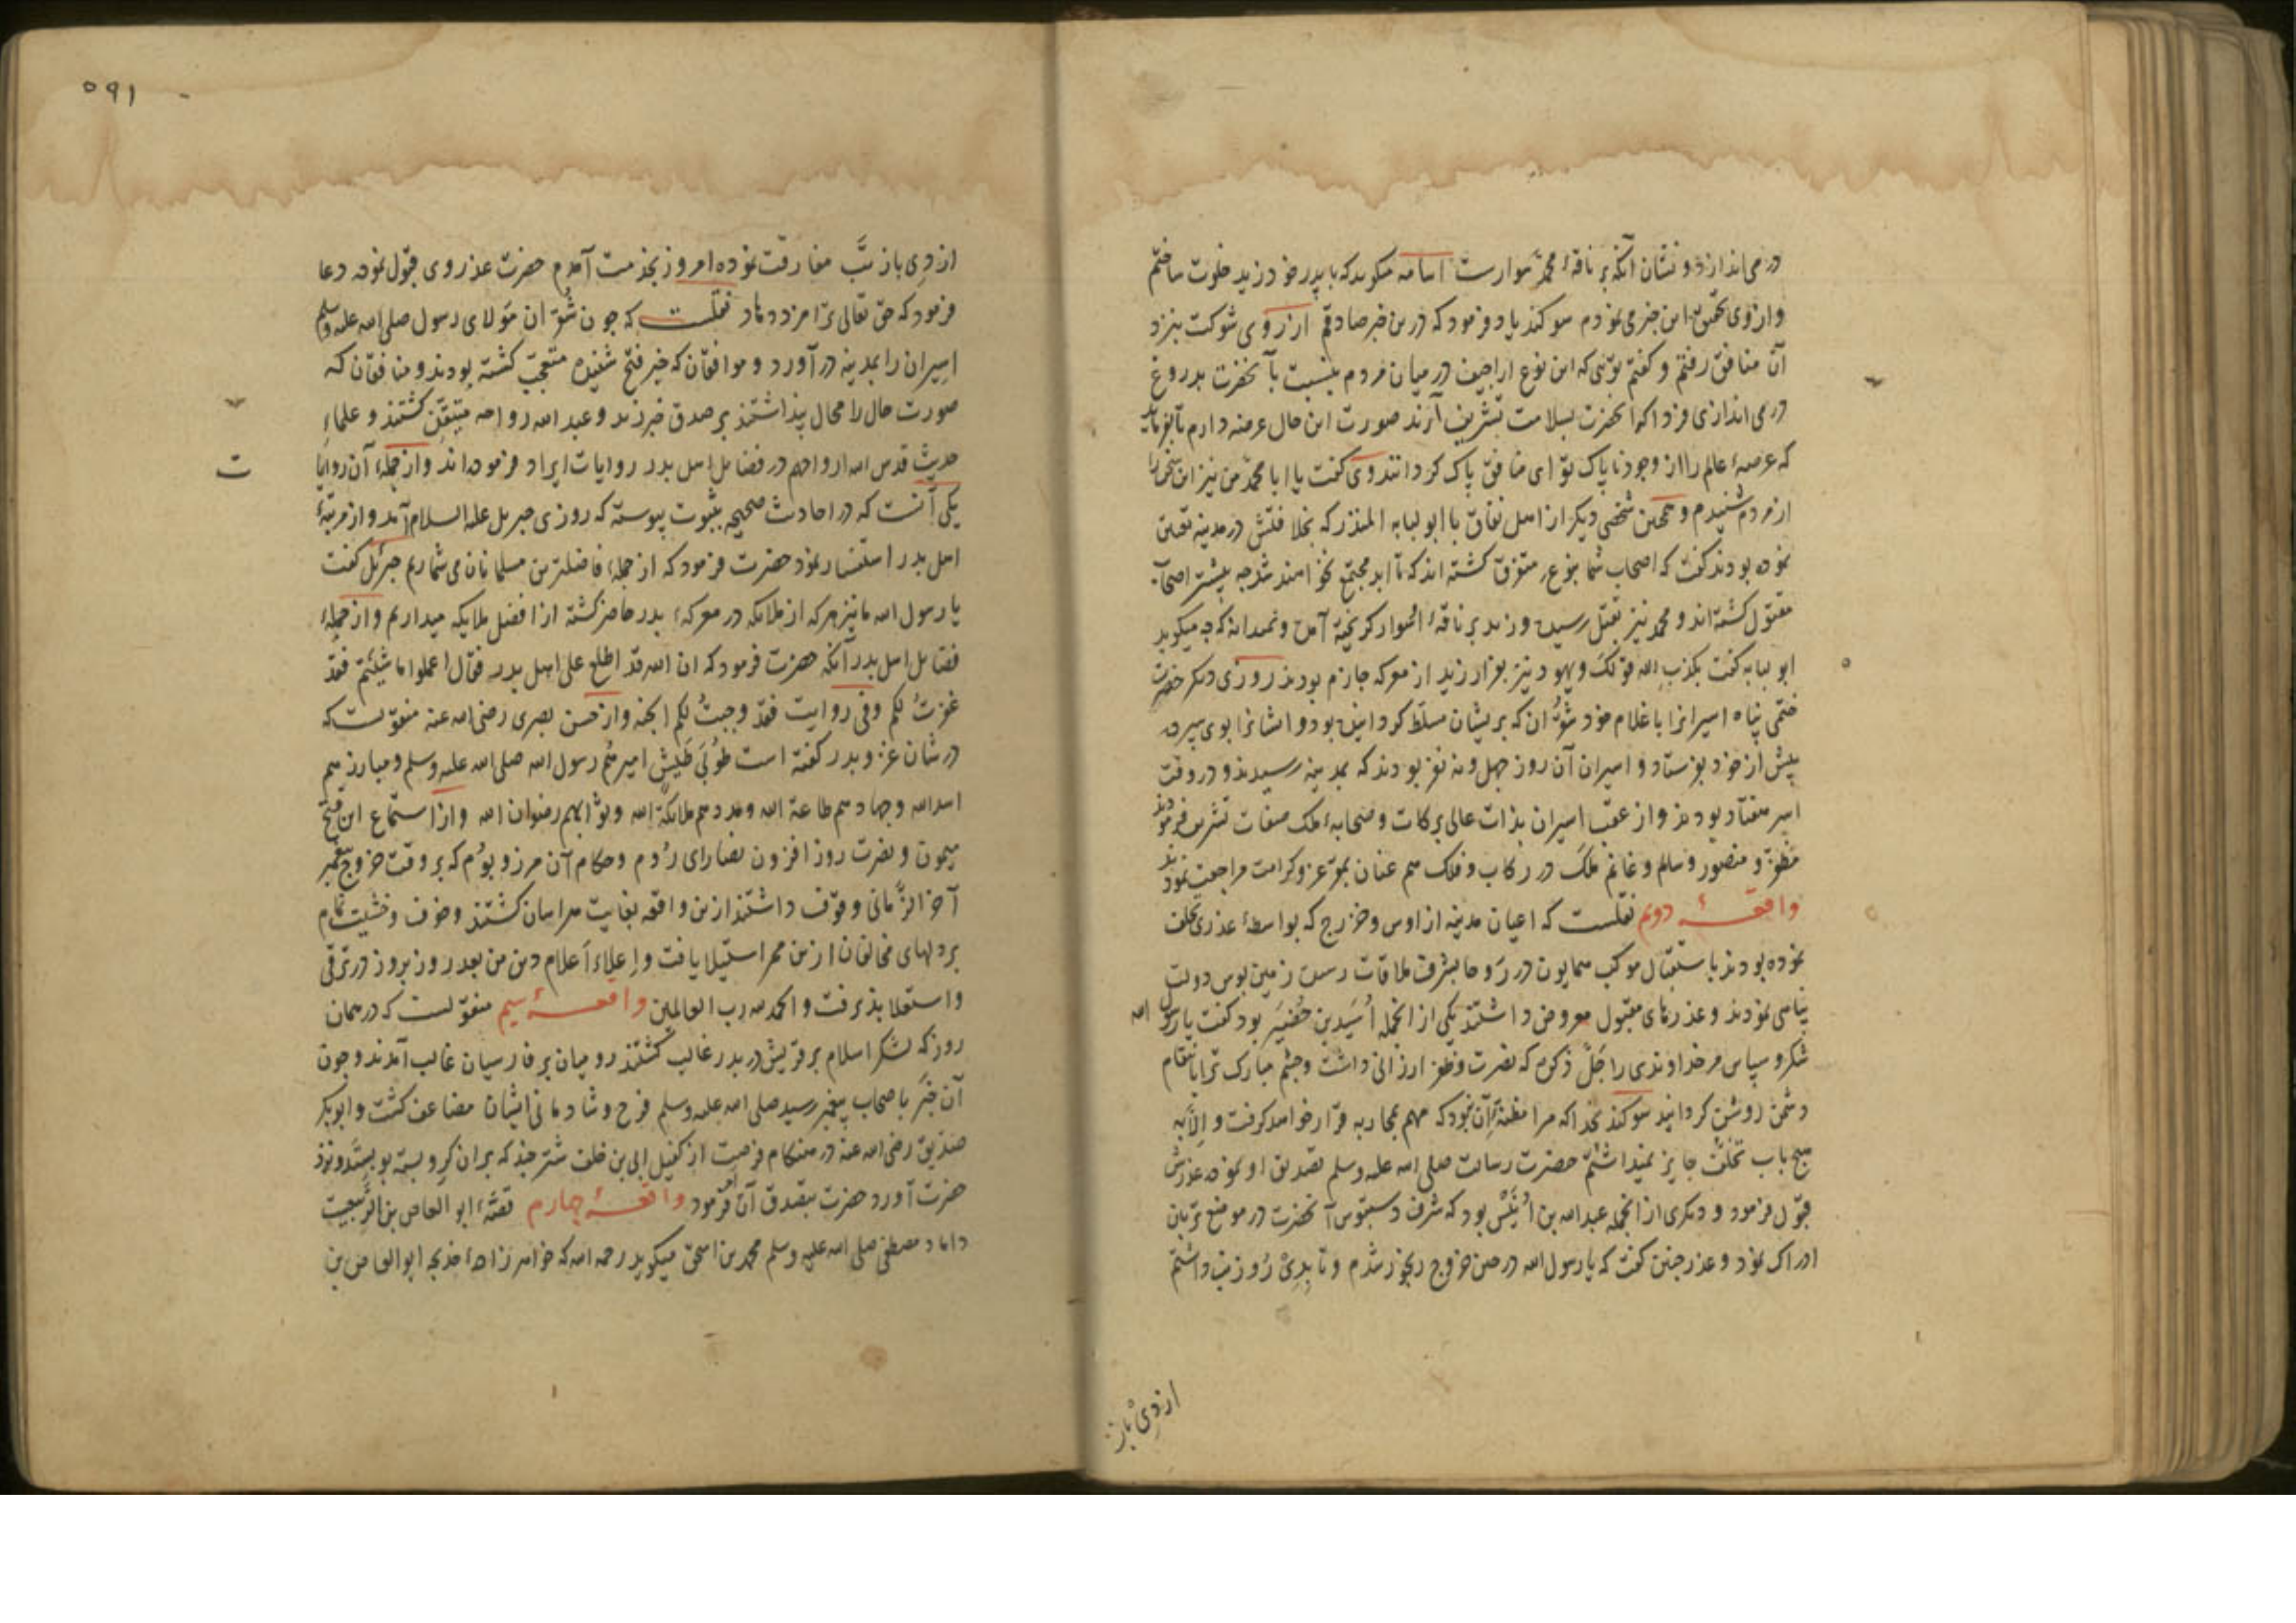 در می اندازد و نشان آنکه بر ناقهٔ محمد سوارست اسامه میکوید که با پدر خود زید خلوت ساختم
و از وی تحقیق این خبر می نمودم سوکند یاد فرمود که درین خبر صادقم از روی شوکت بنزد
آن منافق رفتم و کفتم تویی که این نوع اراجیف در میان مردم بنسبت بآنحضرت بدروغ
در می اندازی فردا که آنحضرت بسلامت تشریف آرند صورت این حال عرضه دارم تا بفرماید
که عرصهٔ عالم را از وجود ناپاک تو ای منافق پاک کردانند وی کفت یا ابا محمد من نیز این سخن را
از مردم شنیدم و همچنین شخصی دیکر از اهل نفاق با ابو لبابه المنذر که بخلافتش در مدینه تعیین
نموده بودند کفت که اصحاب شما بنوعی متفرق کشته اند که تا ابد مجتمع نخواهند شد چه بیشتر اصحاب
مقتول کشته اند و محمد نیز بقتل رسیده و زید بر ناقهٔ او سوار کریخته آمده و نمیداند که چه میکوید
ابو لبابه کفت یکذب الله قولک و یهود نیز بفرار زید از معرکه جازم بودند روزی دیکر حضرت
ختمی پناه اسیرانرا با غلام خود شقران که بریشان مسلط کردانیده بود و ایشانرا بوی سپرده
پیش از خود بفرستاد و اسیران آن روز چهل و نه نفر بودند که بمدینه رسیدند و در وقت
اسر هفتاد بودند و از عقب اسیران بذات عالی برکات و صحابهٔ ملک صفات تشریف فرمودند
مظفر و منصور و سالم و غانم ملک در رکاب و فلک هم عنان بمقر عز و کرامت مراجعت نمودند
واقعهٔ دویم نقلست که اعیان مدینه از اوس و خزرج که بواسطهٔ عذری تخلف
نموده بودند باستقبال موکب همایون در روحا بشرف ملاقات رسیده زمین بوس دولت
پناهی نمودند و عذرهای مقبول معروض داشتند یکی از انجمله اسید بن حضیر بود کفت یا رسول الله
شکر و سپاس مر خداوندی را جل ذکره که نصرت و ظفر ارزانی داشت و چشم مبارک ترا بانتقام
دشمن روشن کردانید سوکند بخدا که مرا مظنهٔ آن نبود که مهم بمحاربه قرار خواهد کرفت و الا به
هیچ باب تخلف جایز نمیداشتم حضرت رسالت صلی الله علیه وسلم تصدیق او نموده عذرش
قبول فرمود و دیکری از انجمله عبد الله بن انیس بود که شرف دستبوس آنحضرت در موضع تربان
ادراک نمود و عذر چنین کفت که یا رسول الله در حین خروج رنجور شدم و تا بدی روز تب داشتم
از دی باز
۱۹۵
از دی باز تب مفارقت نموده امروز بخدمت آمدم حضرت عذر وی قبول نموده دعا
فرمود که حق تعالی ترا مزد دهاد نقلست که چون شقران مولای رسول صلی الله علیه وسلم
اسیران را بمدینه در آورد و موافقان که خبر فتح شنیده متعجب کشته بودند و منافقان که
صورت حال را محال پنداشتند بر صدق خبر زید و عبد الله رواحه متیقن کشتند و علماء
حدیث قدس الله ارواحهم در فضایل اهل بدر روایات ایراد فرموده اند و از جملهٔ آن روایا
ت
یکی آنست که در احادیث صحیحه بثبوت پیوسته که روزی جبریل علیه السلام آمد و از مرتبهٔ
اهل بدر استفسار نمود حضرت فرمود که از جملهٔ فاضلترین مسلمانان می شماریم جبرئیل کفت
یا رسول الله ما نیز هر که از ملایکه در معرکهٔ بدر حاضر کشته از افضل ملایکه میداریم و از جملهٔ
فضایل اهل بدر آنکه حضرت فرمود که ان الله قد اطلع علی اهل بدر فقال اعملوا ما شئتم فقد
غفرت لکم و فی روایت فقد وجبت لکم الجنه و از حسن بصری رضی الله عنه منقولست که
در شان غزوه بدر کفته است طوبی لجیش امیرهم رسول الله صلی الله علیه وسلم و مبارزهم
اسد الله و جهادهم طاعة الله و مددهم ملائکة الله و ثوابهم رضوان الله و از استماع این فتح
میمون و نصرت روز افزون نصارای روم و حکام آن مرز و بوم که بر وقت خروج پیغمبر
آخر الزمانی وقوف داشتند ازین واقعه بغایت هراسان کشتند و خوف و خشیت تمام
بر دلهای مخالفان ازین ممر استیلا یافت و اعلاء اعلام دین من بعد روز بروز در ترقی
و استعلا پذیرفت و الحمد لله رب العالمین واقعهٔ سیم منقولست که در همان
روز که لشکر اسلام بر قریش در بدر غالب کشتند رومیان بر فارسیان غالب آمدند و چون
آن خبر باصحاب پیغمبر رسید صلی الله علیه وسلم فرح و شادمانی ایشان مضاعف کشت و ابوبکر
صدیق رضی الله عنه در هنکام فرصت از کفیل ابی بن خلف شتری چند که بر آن کرو بسته بود بستد و نزد
حضرت آورد حضرت بتصدق آن امر فرمود واقعهٔ چهارم قصهٔ ابو العاص بن الربیعست
داماد مصطفی صلی الله علیه وسلم محمد بن اسحق میکوید رحمه الله که خواهرزادهٔ خدیجه ابو العاص بن